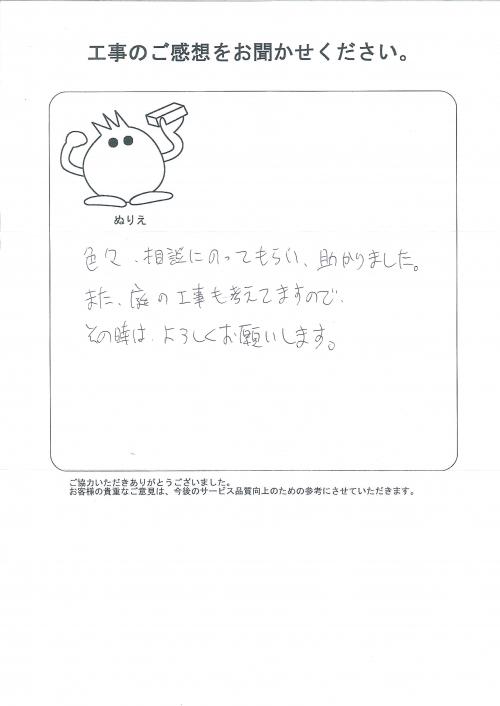 工事のご感想をお聞かせください。
ぬりえ
色々、相談にのってもらい、助かりました。
また、庭の工事も考えてますので、
その時は、よろしくお願いします。
ご協力いただきありがとうございました。
お客様の貴重なご意見は、今後のサービス品質向上のための参考にさせていただきます。